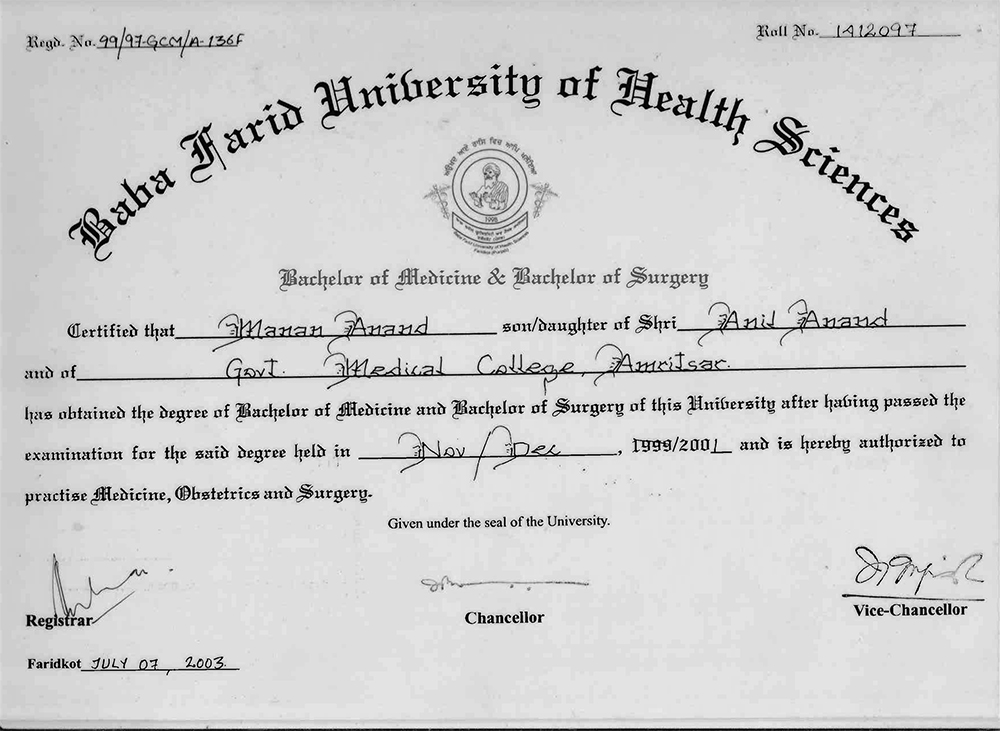 Regd. No. 99/97-GCM/A-136F
Roll No. 1412097
Baba Farid University of Health Sciences
1998
Baba Farid University of Health Sciences
Faridkot (Punjab)
Bachelor of Medicine & Bachelor of Surgery
Certified that Manan Anand son/daughter of Shri Anil Anand
and of Govt. Medical College, Amritsar.
has obtained the degree of Bachelor of Medicine and Bachelor of Surgery of this University after having passed the
examination for the said degree held in Nov/Dec, 1999/2001 and is hereby authorized to
practise Medicine, Obstetrics and Surgery.
Given under the seal of the University.
Registrar
Chancellor
Vice-Chancellor
Faridkot JULY 07, 2003.